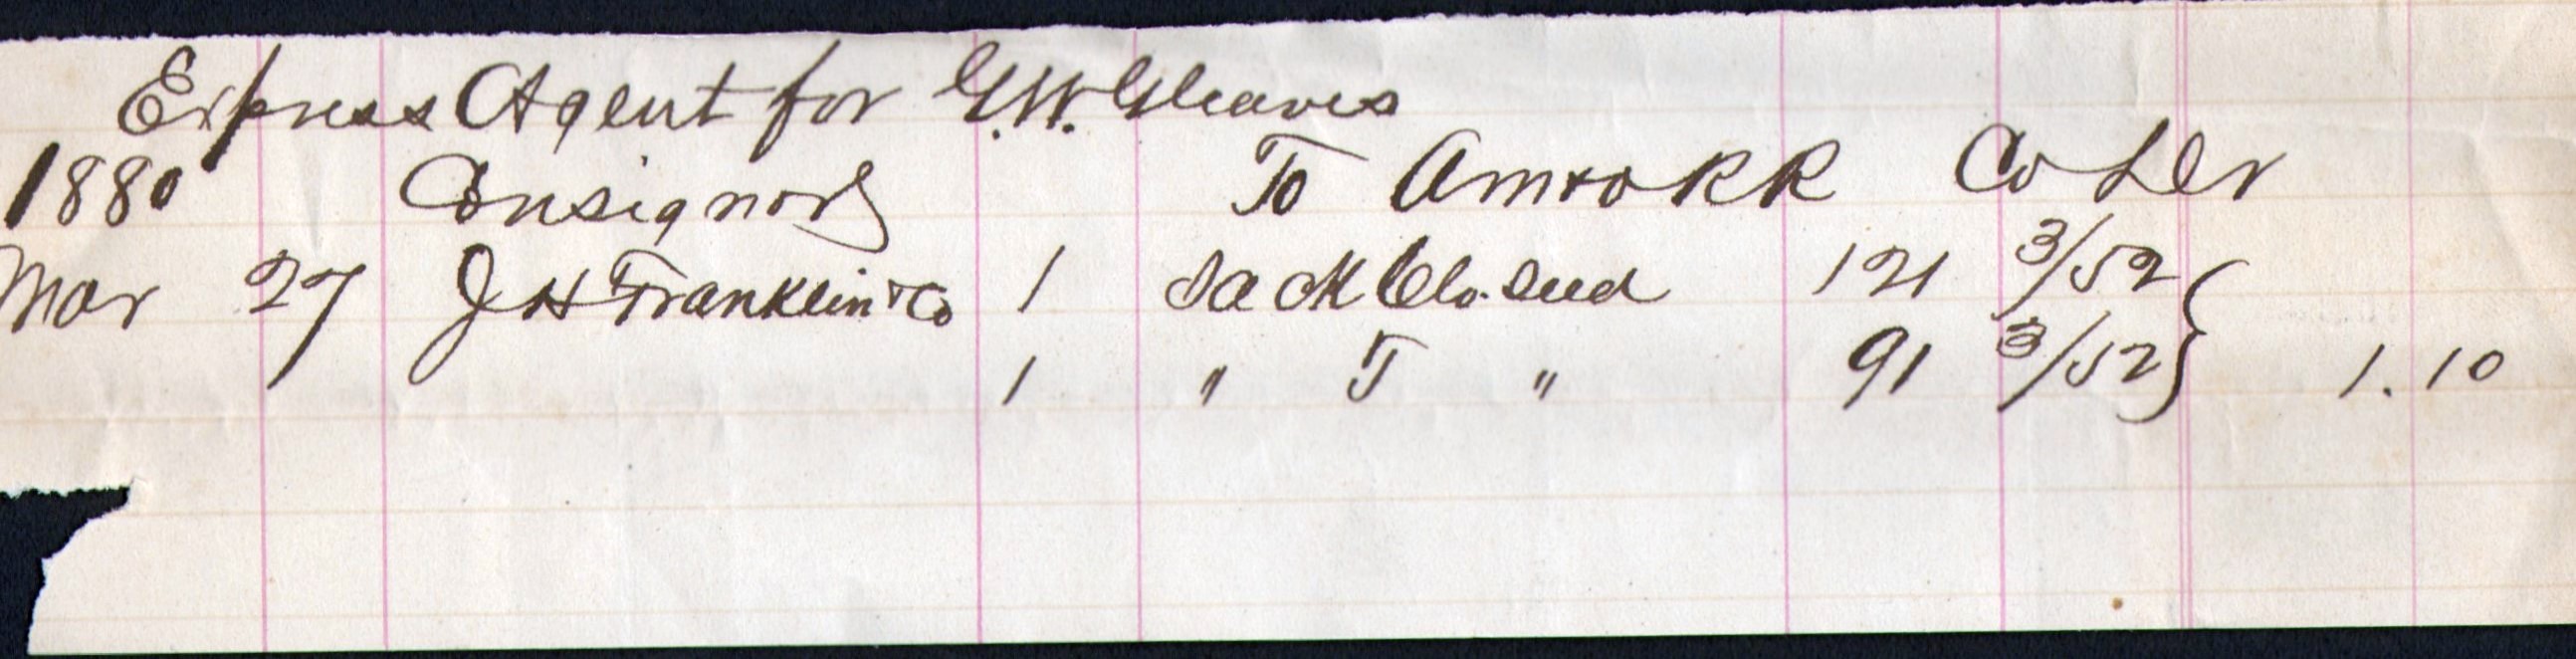 Express Agent for G.W. Gleaves
1880 Consignor To AM&O RR Co Dr
Mar 27 J H Franklin & Co 1 Sack Clo. Seed 121 3/52
1 " T " 91 3/52 } 1.10